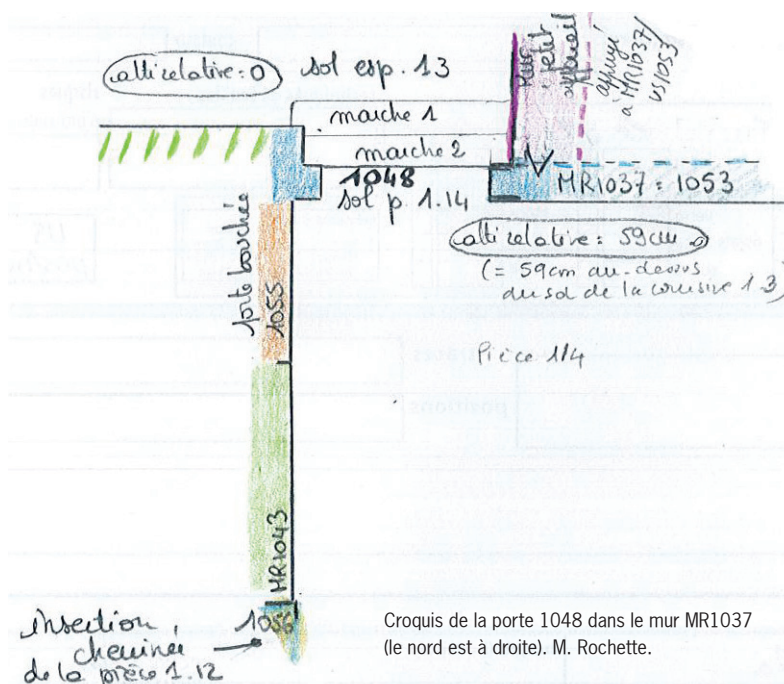 alti relative : 0
sol esp. 13
marche 1
marche 2
1048
sol p. 1.14
mur
petit
appareil
appuyé
à MR1037/
US1053
MR1037 = 1053
alti relative : 59cm
(= 59cm au-dessus
du sol de la coursive 13)
Pièce 1/4
porte bouchée
1055
MR1043
1056
insertion
cheminée
de la pièce 1.12
positions
Croquis de la porte 1048 dans le mur MR1037
(le nord est à droite). M. Rochette.